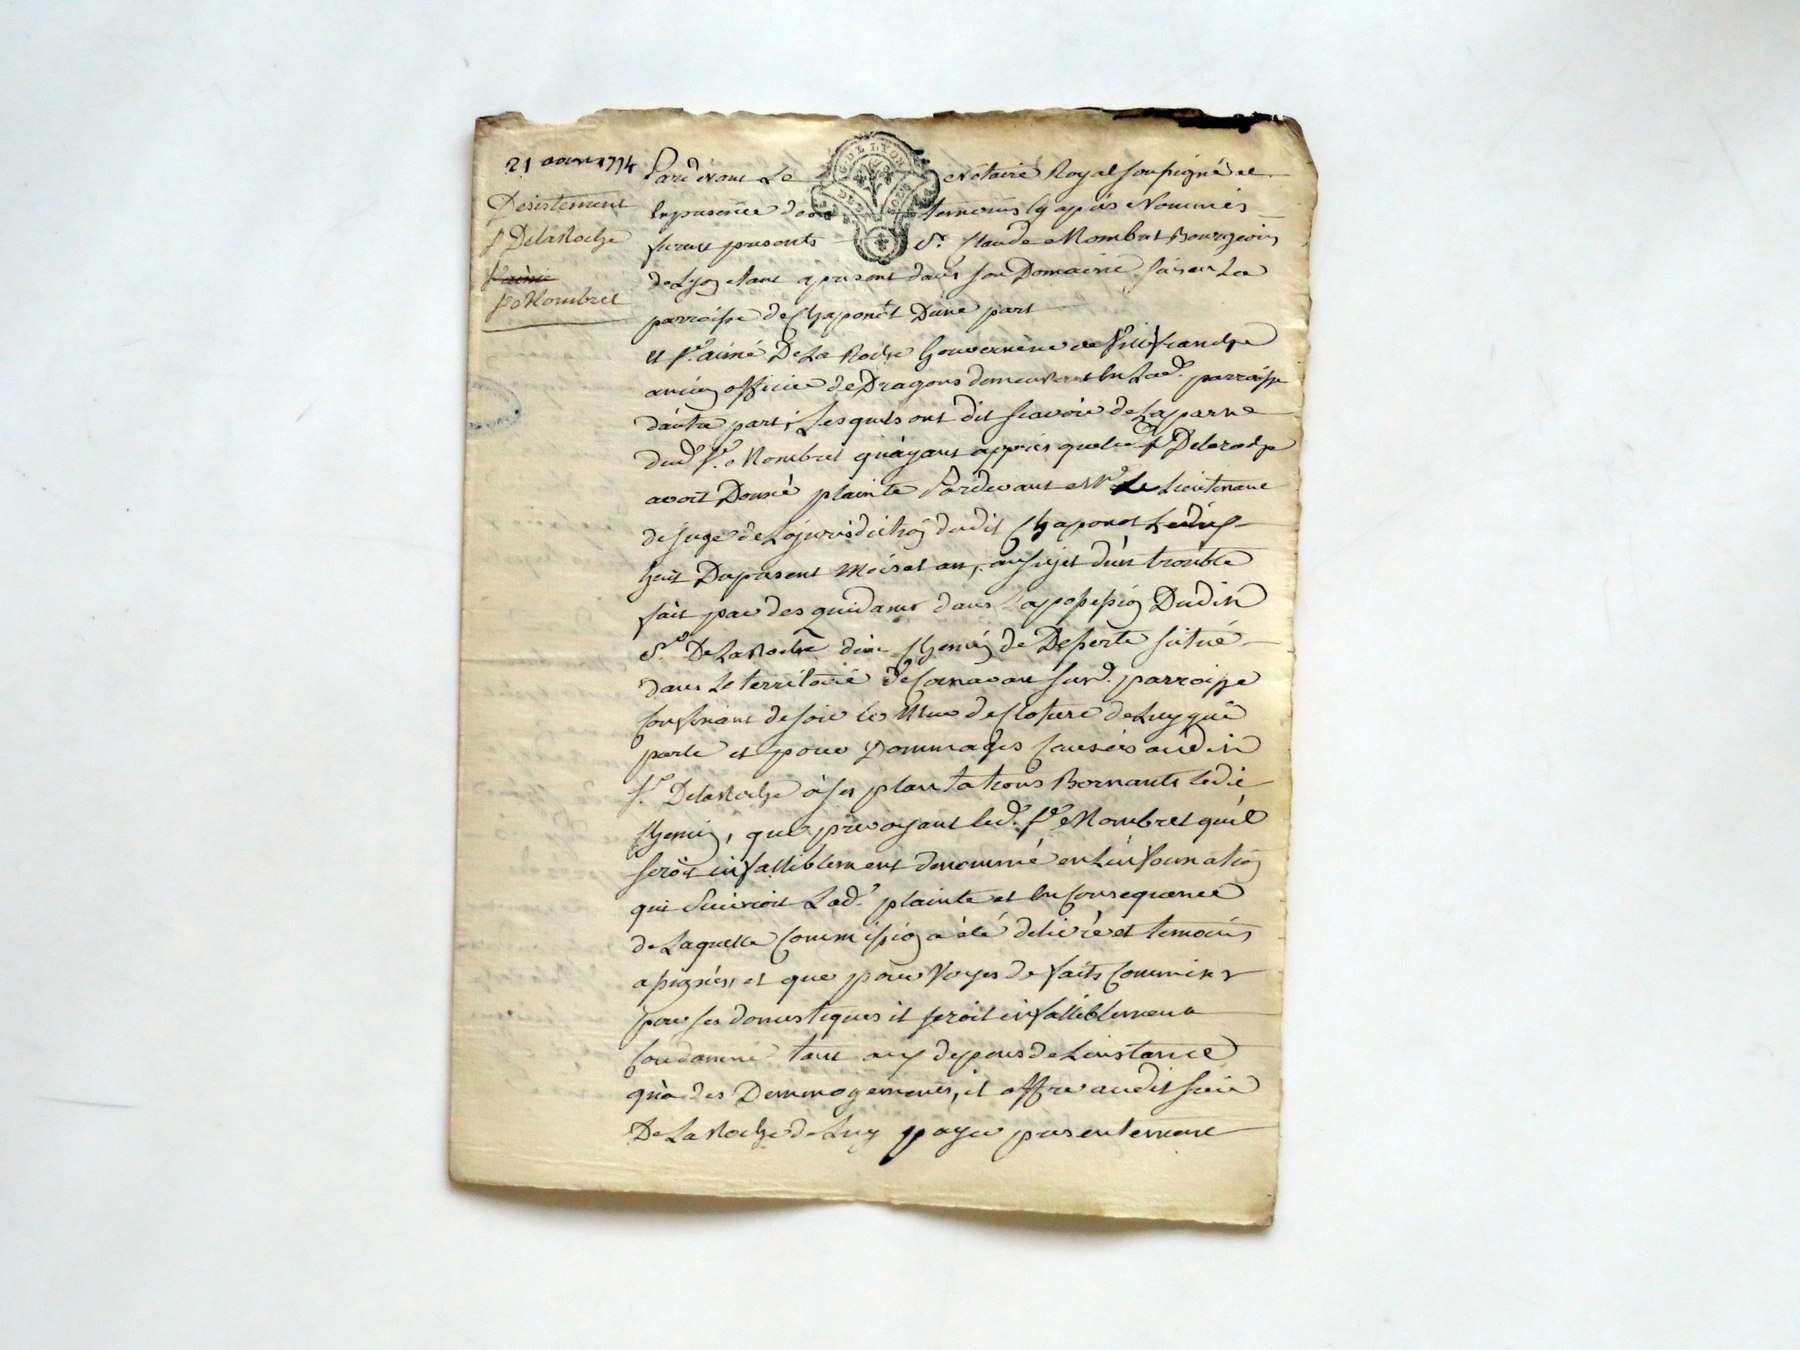 21 aoust 1774
Desistement
Sr DelaRoche
Sr aimé
Sr Mombret
DE LYON
Pardevant Le Notaire Royal soussigné et
En presence des temoins cy apres Nommés
furent presents Sr. Claude Mombret Bourgeois
de Lyon etant a present dans son Domaine en La
parroisse de Chaponot Dune part
et Sr. aimé De La Roche Gouverneur de Villefranche
ancien officier de Dragons demeurant En Lad. parroisse
dautre part, Lesquels ont dit scavoir de La part
dud. Sr. Mombret quayant appris que led. Sr Delaroche
avoit Donné plainte Pardevant Mr. Le Lieutenant
de juge de La jurisdiction dudit Chaponot Le dix
huit Du present mois et an, au sujet dun trouble
fait par des quidams dans La possession Dudit
Sr. De La Roche d'un Chemin de Desserte situé
dans Le territoire de sur d. parroisse
Confinant de soir les Murs de Cloture de Luy qui
parle et pour Dommages Causées audit
Sr. DelaRoche à ses plantations Bornants ledit
Chemin, que prevoyant led. Sr. Mombret quil
seroit infalliblement denommé en Linformation
qui Suivroit Lad. plainte et En Consequence
de Laquelle Commission a été delivré et temoins
assignés, et que pour Voyes de faits Commises
par ses domestiques il seroit infalliblement
Condamné tant aux depens de Linstance
quà des Dommagements, il offre audit sieur
De La Roche de Luy payer presentement